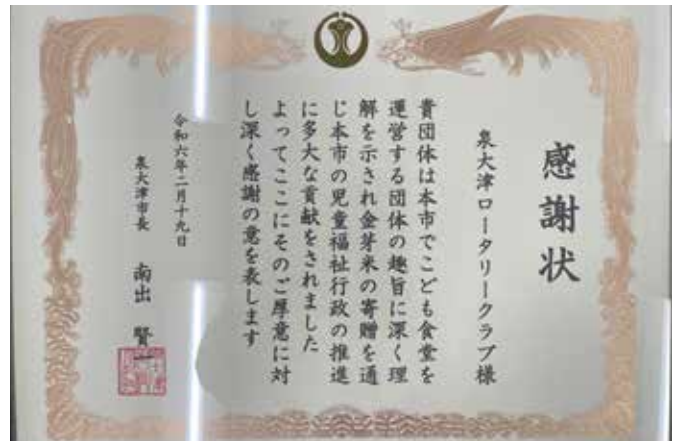 感謝状
泉大津ロータリークラブ様
貴団体は本市でこども食堂を
運営する団体の趣旨に深く理
解を示され金芽米の寄贈を通
じ本市の児童福祉行政の推進
に多大な貢献をされました
よってここにそのご厚意に対
し深く感謝の意を表します
令和六年二月十九日
泉大津市長 南出 賢一